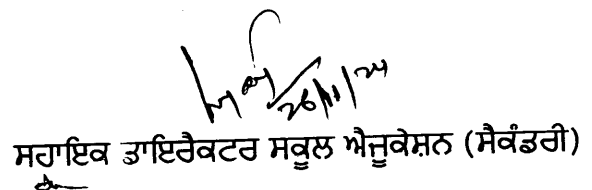 26/11/24
ਸਹਾਇਕ ਡਾਇਰੈਕਟਰ ਸਕੂਲ ਐਜੂਕੇਸ਼ਨ (ਸੈਕੰਡਰੀ)